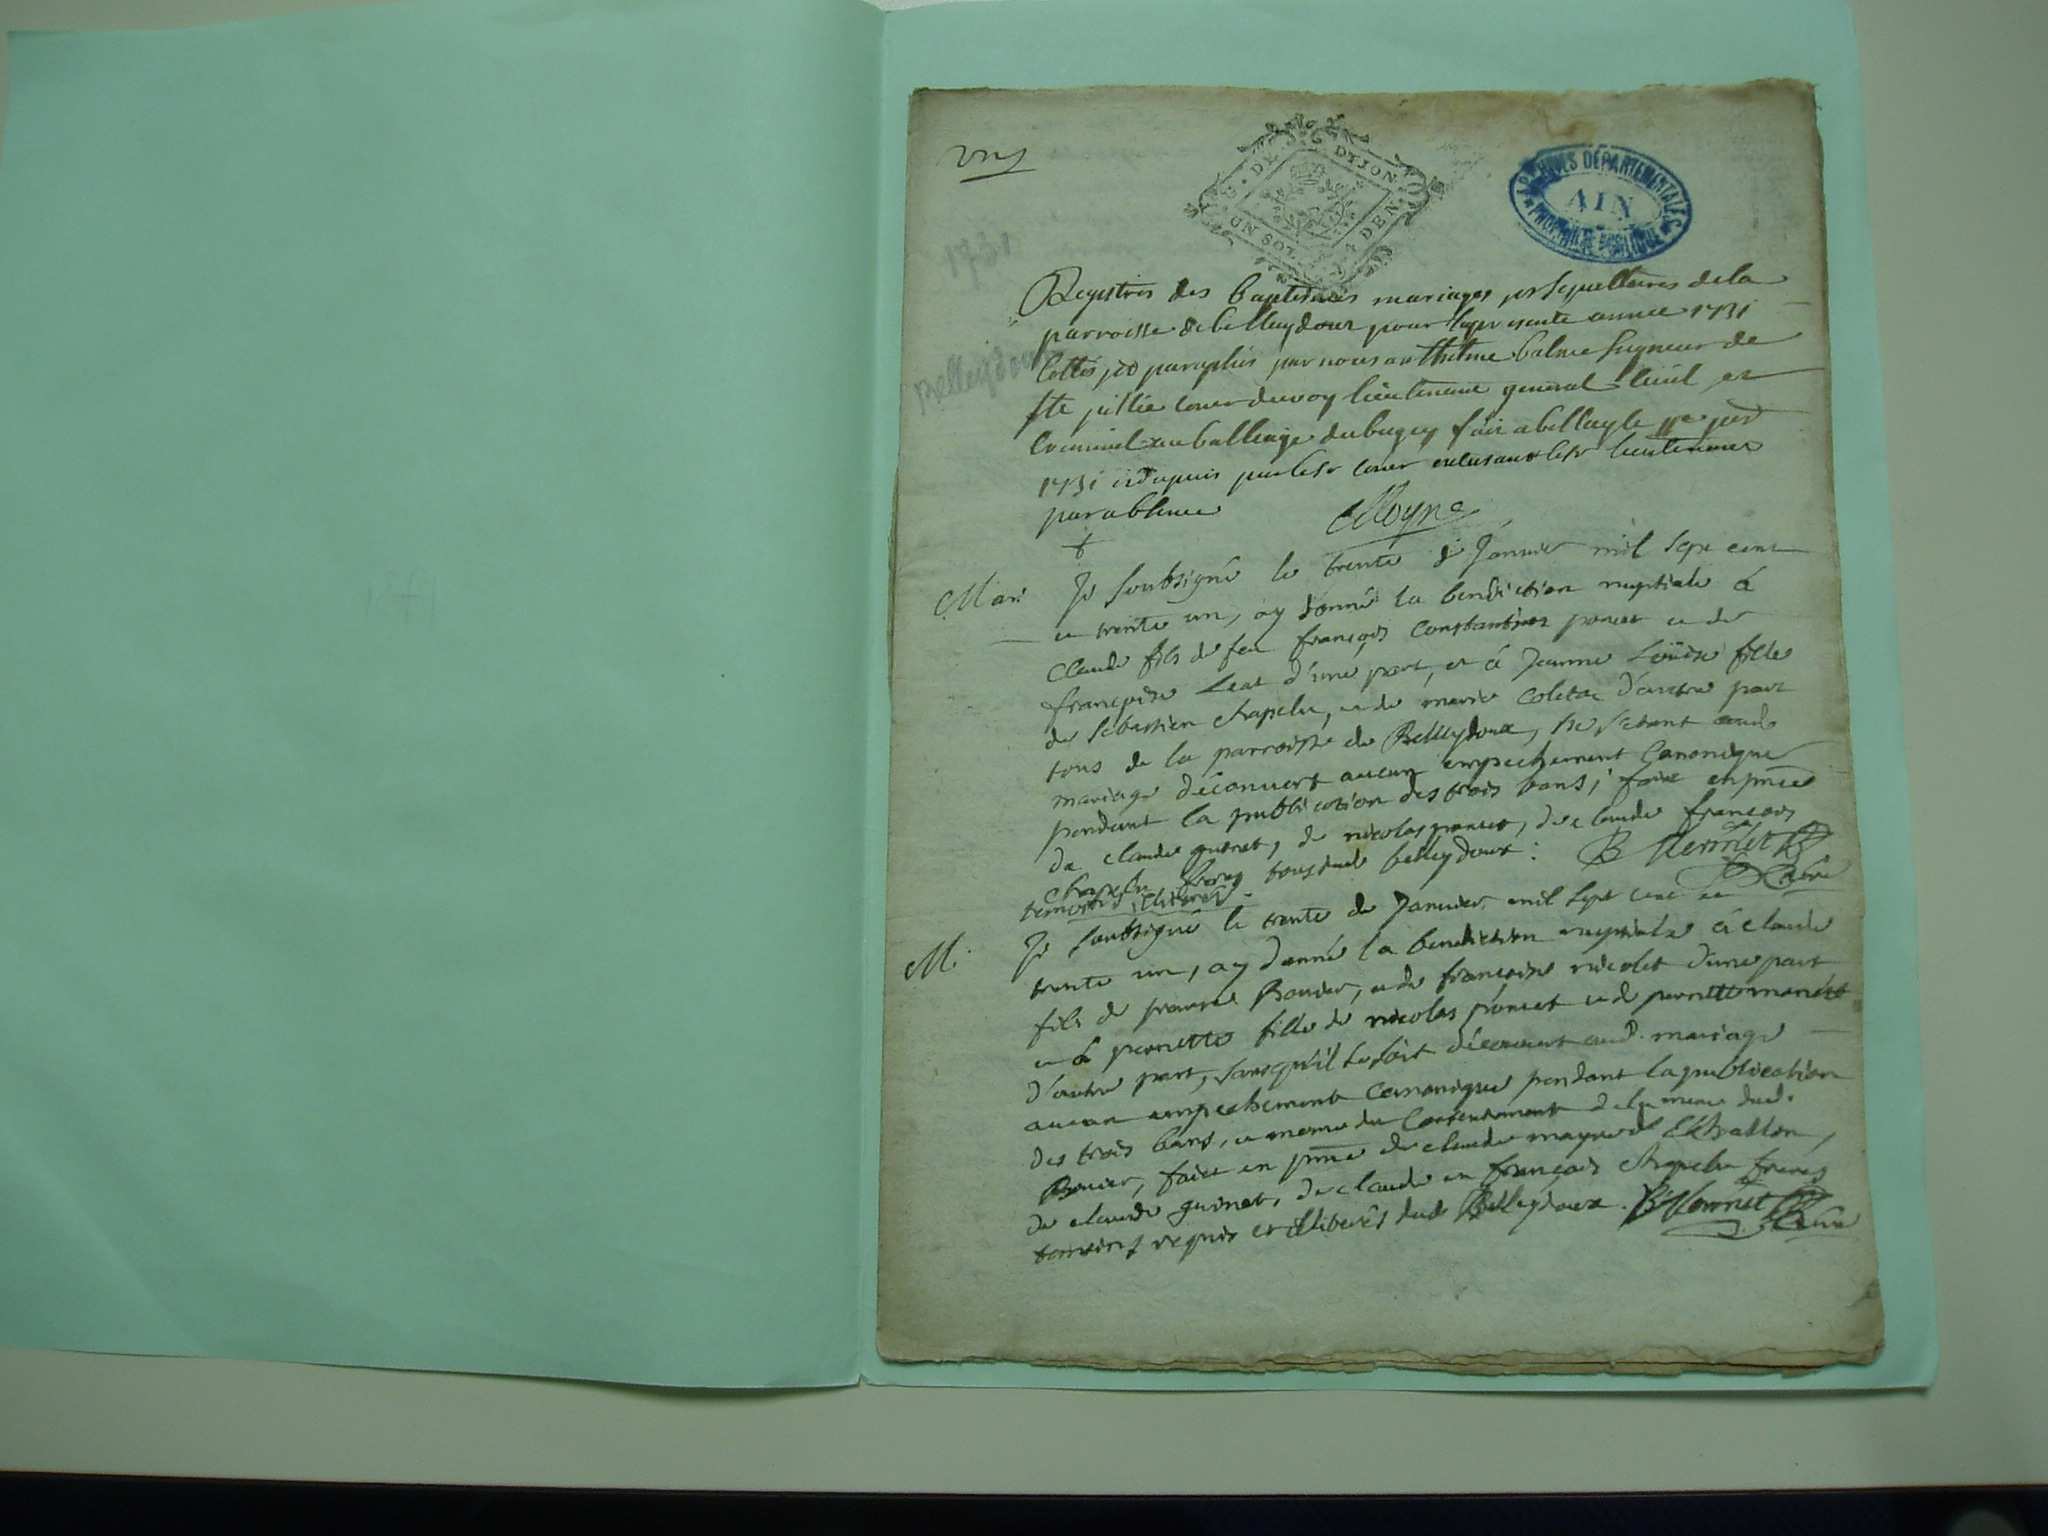 G. DE DIJON
UN SOL 4 DEN
ARCHIVES DÉPARTEMENTALES
AIN
PROPRIÉTÉ PUBLIQUE
1731
Belleydoux
Registres des baptesmes mariages et sepultures de la
parroisse de belleydoux pour la presente annee 1731
Cottés et paraphés par nous anthelme balme seigneur de
ste jullie coner du roy lieutenant general civil et
Criminel au balliage du bugey fait a belley le
1731 et depuis par le sr lieutenant
par absence
Mari. Je soubsigné le trente de Janvier mil sept cent
et trente un, ay donné la benediction nuptiale à
Claude fils de feu françois Constantin poncet et de
françoise d'une part, et à Jeanne Loüise fille
de Sebastien Chapelu, et de marie d'autre part
tous de la parroisse de Belleydoux, ne s'etant aud.
mariage découvert aucun empechement Canonique
pendant la publication des trois bans; fait en pnce
de claude guinet, de nicolas poncet, de claude françois
chapelu tous dud. belleydoux: B Mermet
temoins illiterés. Curé
M. Je soubsigné le trente de Janvier mil sept cent et
trente un, ay donné la benediction nuptiale à claude
fils de pierre Bouvier, et de françoise nicolet d'une part
et à pernette fille de nicolas poncet et de pernette
d'autre part, sans qu'il se soit découvert aud. mariage
aucun empechement Canonique pendant la publication
des trois bans, et meme du Consentement de la mere dud.
Bouvier, fait en pnce de claude d'Echallon,
de claude guinet, de claude et françois chapelu freres
temoins requis et illiterés dud. Belleydoux. B Mermet
Curé